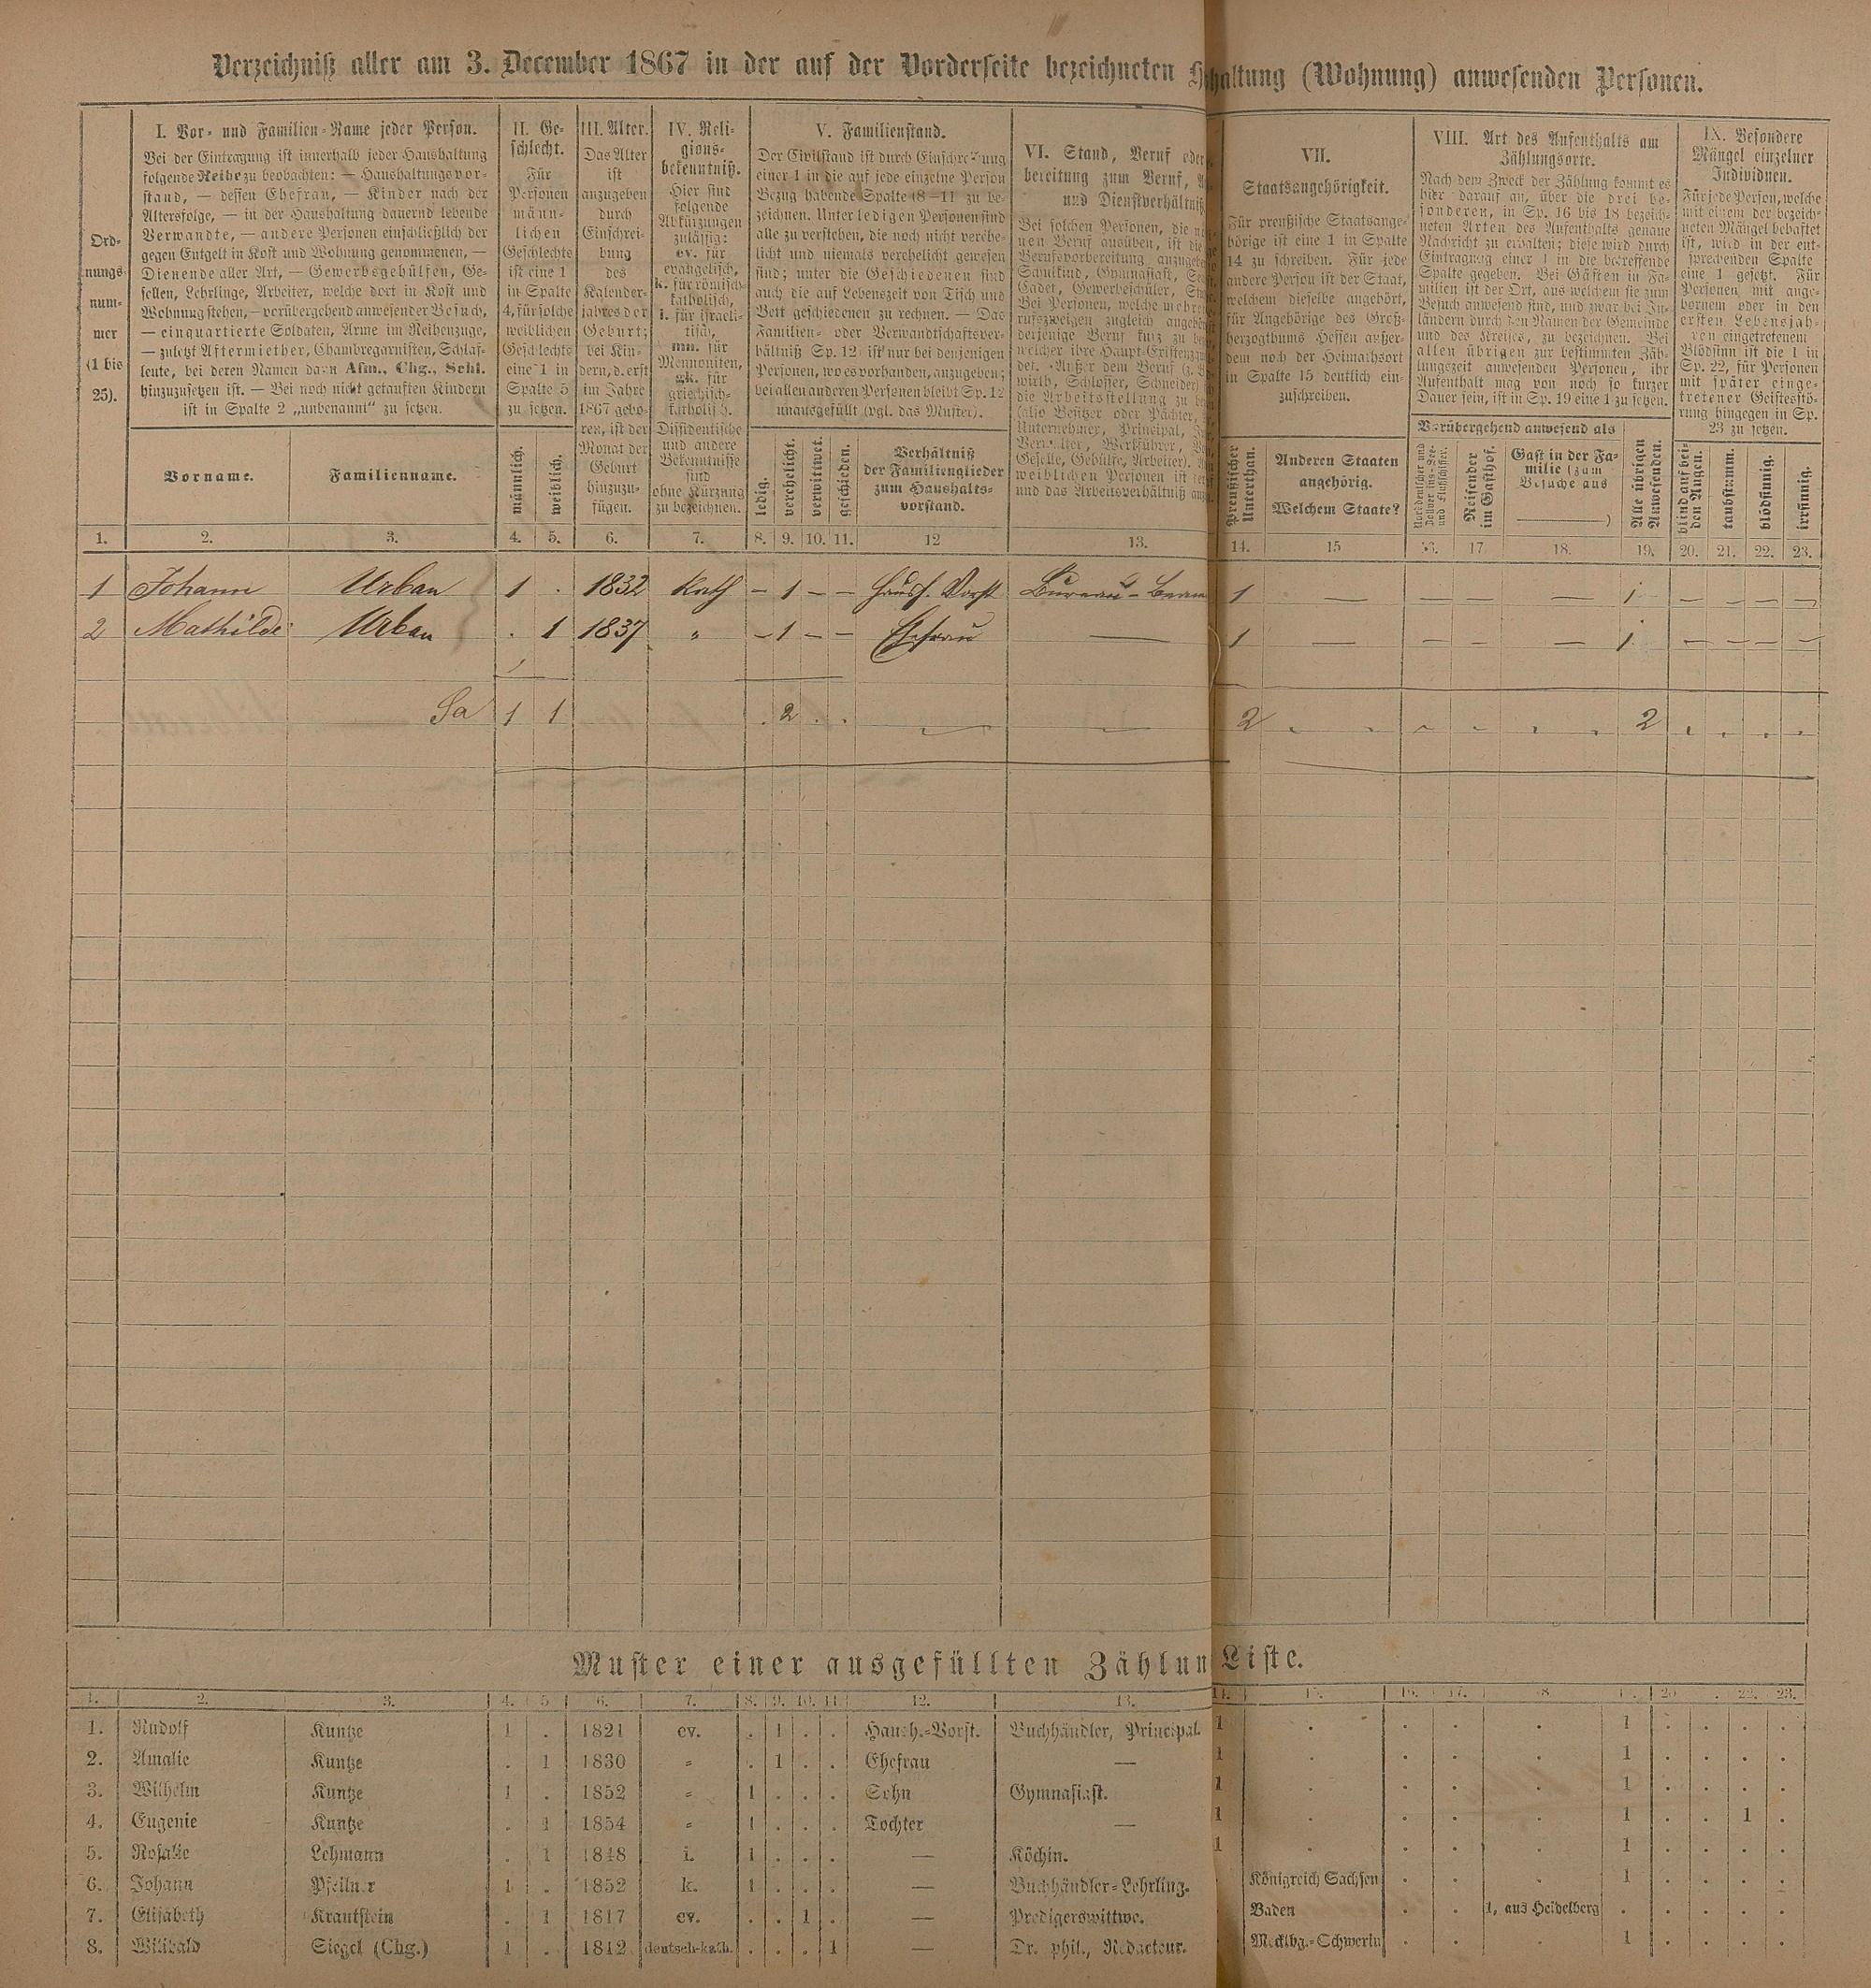 Verzeichniß aller am 3. December 1867 in der auf der Vorderseite bezeichneten haltung (Wohnung) anwesenden Personen.
Ord-
nungs-
num-
mer
(1 bis
25).
I. Vor- und Familien-Name jeder Person.
Bei der Eintragung ist innerhalb jeder Haushaltung
folgende Reihe zu beobachten: — Haushaltungsvor-
stand, — dessen Ehefrau, — Kinder nach der
Altersfolge, — in der Haushaltung dauernd lebende
Verwandte, — andere Personen einschließlich der
gegen Entgelt in Kost und Wohnung genommenen, —
Dienende aller Art, — Gewerbsgehülfen, Ge-
sellen, Lehrlinge, Arbeiter, welche dort in Kost und
Wohnung stehen, — vorübergehend anwesender Besuch,
— einquartierte Soldaten, Arme im Reihenzuge,
— zuletzt Aftermiether, Chambregarnisten, Schlaf-
leute, bei deren Namen dann Afm., Chg., Schl.
hinzuzusetzen ist. — Bei noch nicht getauften Kindern
ist in Spalte 2 „unbenannt“ zu setzen.
Vorname.
Familienname.
II. Ge-
schlecht.
Für
Personen
männ-
lichen
Geschlechts
ist eine 1
in Spalte
4, für solche
weiblichen
Geschlechts
eine 1 in
Spalte 5
zu setzen.
männlich.
weiblich.
III. Alter.
Das Alter
ist
anzugeben
durch
Einschrei-
bung
des
Kalender-
jahres der
Geburt;
bei Kin-
dern, d. erst
im Jahre
1867 gebo-
ren, ist der
Monat der
Geburt
hinzuzu-
fügen.
IV. Reli-
gions-
bekenntniß.
Hier sind
folgende
Abkürzungen
zulässig:
ev. für
evangelisch,
k. für römisch-
katholisch,
i. für israeli-
tisch,
mn. für
Mennoniten,
gk. für
griechisch-
katholisch.
Dissidentische
und andere
Bekenntnisse
sind
ohne Kürzung
zu bezeichnen.
V. Familienstand.
Der Civilstand ist durch Einschreibung
einer 1 in die auf jede einzelne Person
Bezug habende Spalte (8—11) zu be-
zeichnen. Unter ledigen Personen sind
alle zu verstehen, die noch nicht verehe-
licht und niemals verehelicht gewesen
sind; unter die Geschiedenen sind
auch die auf Lebenszeit von Tisch und
Bett geschiedenen zu rechnen. — Das
Familien- oder Verwandtschaftsver-
hältniß Sp. 12 ist nur bei denjenigen
Personen, wo es vorhanden, anzugeben;
bei allen anderen Personen bleibt Sp. 12
unausgefüllt (vgl. das Muster).
ledig.
verehelicht.
verwittwet.
geschieden.
Verhältniß
der Familienglieder
zum Haushalts-
vorstand.
VI. Stand, Beruf oder
bereitung zum Beruf,
und Dienstverhältniß
Bei solchen Personen, die
nen Beruf ausüben, ist die
Berufsvorbereitung anzugeben
Schulkind, Gymnasiast,
Cadet, Gewerbeschüler,
Bei Personen, welche mehrere
rufszweigen zugleich
derjenige Beruf kurz zu
welcher ihre Haupt-Existenz
det. Außer dem Beruf (z. B.
wirth, Schlosser, Schneider)
die Arbeitsstellung zu
(also Besitzer oder Pächter,
Unternehmer, Principal,
Verwalter, Werkführer,
Geselle, Gehülfe, Arbeiter).
weiblichen Personen ist
und das Arbeitsverhältniß
VII.
Staatsangehörigkeit.
Für preußische Staatsange-
hörige ist eine 1 in Spalte
14 zu schreiben. Für jede
andere Person ist der Staat,
welchem dieselbe angehört,
für Angehörige des Groß-
herzogthums Hessen außer-
dem noch der Heimathsort
in Spalte 15 deutlich ein-
zuschreiben.
Preußischer
Unterthan.
Anderen Staaten
angehörig.
Welchem Staate?
VIII. Art des Aufenthalts am
Zählungsorte.
Nach dem Zweck der Zählung kommt es
hier darauf an, über die drei be-
sonderen, in Sp. 16 bis 18 bezeich-
neten Arten des Aufenthalts genaue
Nachricht zu erhalten; diese wird durch
Eintragung einer 1 in die betreffende
Spalte gegeben. Bei Gästen in Fa-
milien ist der Ort, aus welchem sie zum
Besuch anwesend sind, und zwar bei In-
ländern durch den Namen der Gemeinde
und des Kreises, zu bezeichnen. Bei
allen übrigen zur bestimmten Zäh-
lungszeit anwesenden Personen, ihr
Aufenthalt mag von noch so kurzer
Dauer sein, ist in Sp. 19 eine 1 zu setzen.
Vorübergehend anwesend als
Norddeutscher und
Zollvereins-See-
und Flußschiffer.
Reisender
im Gasthof.
Gast in der Fa-
milie (zum
Besuche aus
)
Alle übrigen
Anwesenden.
IX. Besondere
Mängel einzelner
Individuen.
Für jede Person, welche
mit einem der bezeich-
neten Mängel behaftet
ist, wird in der ent-
sprechenden Spalte
eine 1 gesetzt. Für
Personen mit ange-
bornem oder in den
ersten Lebensjah-
ren eingetretenem
Blödsinn ist die 1 in
Sp. 22, für Personen
mit später einge-
tretener Geistesstö-
rung hingegen in Sp.
23 zu setzen.
blind auf bei-
den Augen.
taubstumm.
blödsinnig.
irrsinnig.
1. 2. 3. 4. 5. 6. 7. 8. 9. 10. 11. 12 13. 14. 15 16. 17 18. 19. 20. 21. 22. 23.
1 Johann Urban 1 . 1832 Kath — 1 — — Haush. Vorst Bureau-Beam 1 — — — — 1 — — — —
2 Mathilde Urban . 1 1837 " — 1 — — Ehefrau — 1 — — — — 1 — — — —
Sa 1 1 . 2 . . 2 2
Muster einer ausgefüllten Zählun Liste.
1. 2. 3. 4. 5 6. 7. 8. 9. 10. 11. 12. 13. 14. 15. 16. 17. 18. 20 22. 23.
1. Rudolf Kuntze 1 . 1821 ev. . 1 . . Haush.-Vorst. Buchhändler, Principal. 1 . . . . 1 . . . .
2. Amalie Kuntze . 1 1830 " . 1 . . Ehefrau — 1 . . . . 1 . . . .
3. Wilhelm Kuntze 1 . 1852 " 1 . . . Sohn Gymnasiast. 1 . . . . 1 . . . .
4. Eugenie Kuntze . 1 1854 " 1 . . . Tochter — 1 . . . . 1 . . 1 .
5. Rosalie Lehmann . 1 1848 i. 1 . . . — Köchin. 1 . . . . 1 . . . .
6. Johann Pfeilner 1 . 1852 k. 1 . . . — Buchhändler-Lehrling. Königreich Sachsen . . . 1 . . . .
7. Elisabeth Krautstein . 1 1817 ev. . . 1 . — Predigerswittwe. Baden . . 1, aus Heidelberg . . . . .
8. Willibald Siegel (Chg.) 1 . 1812 deutsch-kath. . . . 1 — Dr. phil., Redacteur. Mecklbg.-Schwerin . . . 1 . . . .